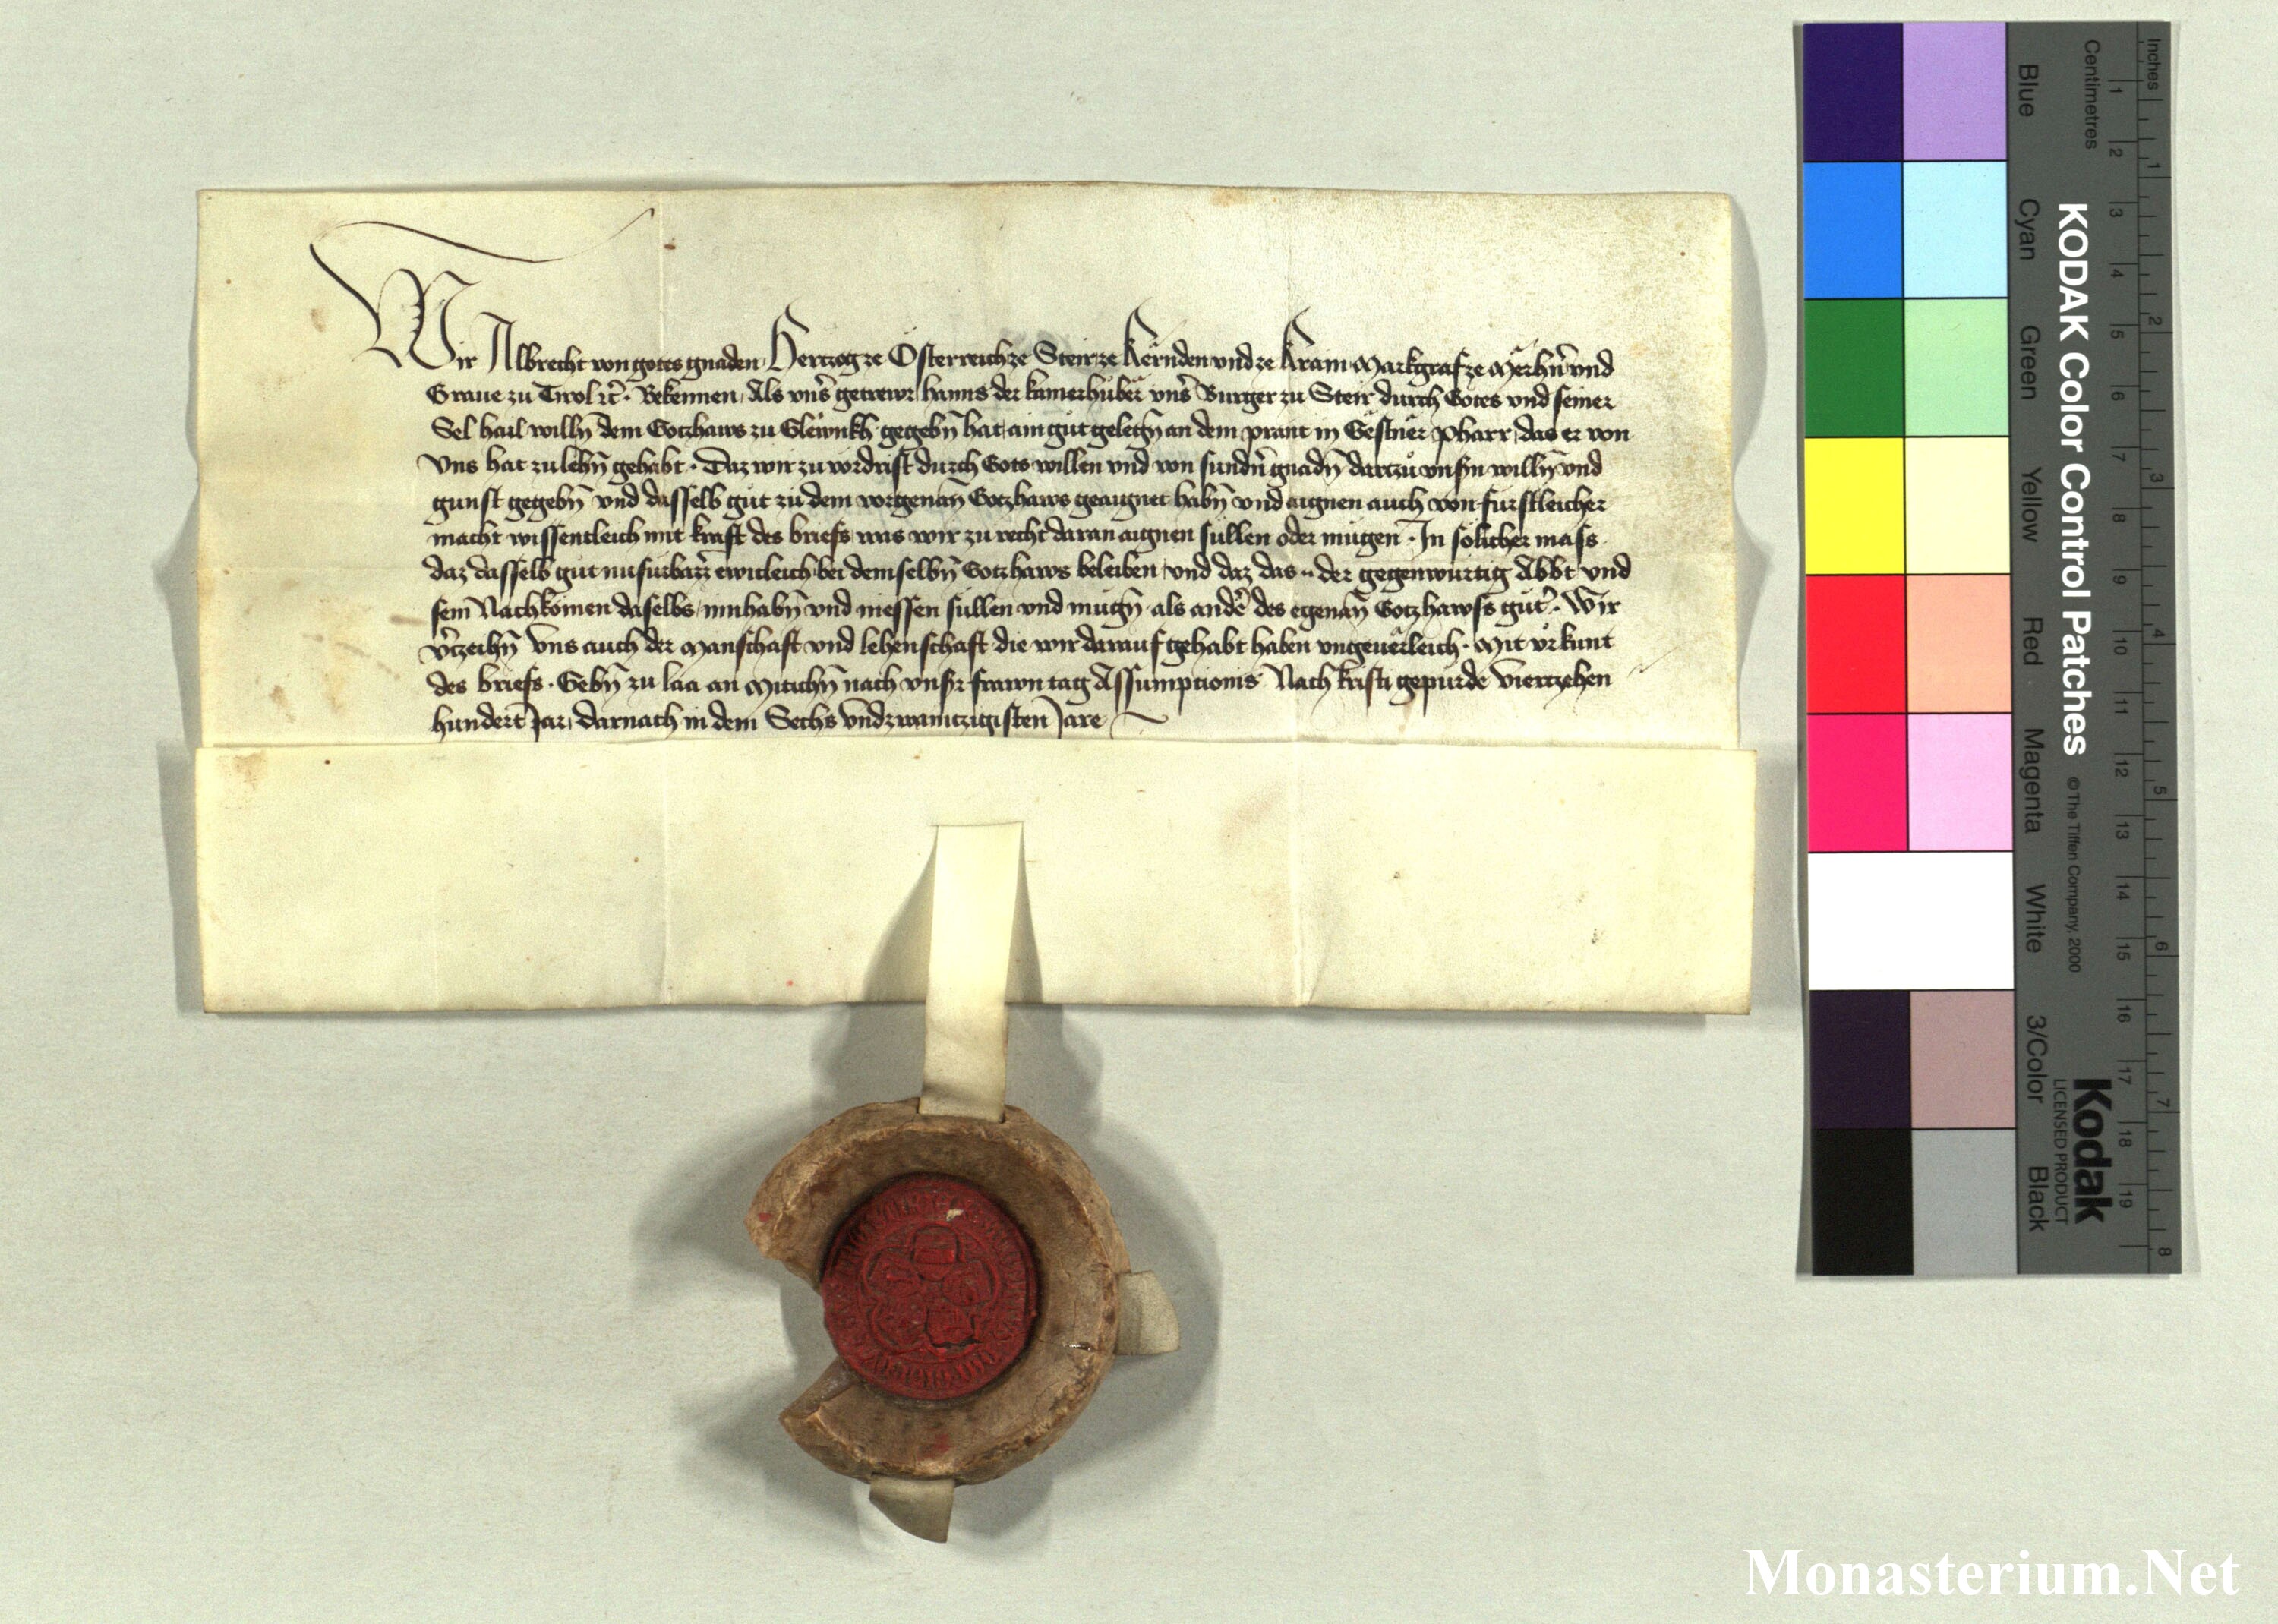 Wir Albrecht von gotes gnaden Hertzog ze Österreich ze Steir ze Kërnden vnd ze Krain Markgraf ze Mërhn̄ vnd
Graue zu Tirol ꝛc̄. Bekennen, Als vnſ̄ getrewr hanns der kamerhuber vnſ̄ Burger zu Steir durch Gotes vnd ſeiner
Sel hail willn̄ dem Gotzhaws zu Glewnkh gegebn̄ hat, ain gut gelegn̄ an dem prant in Geſtner Pharr, das er von
Vns hat zu lehn̄ gehabt. Daz wir zu vordriſt durch Gots willen vnd von ſundn̄ gnadn̄ dartzů vnſn willn̄ vnd
gunſt gegebn̄ vnd daſſelb gůt zu dem vorgenan̄ Gotzhaws geaignet habn̄ vnd aignen auch von furſtleicher
macht wiſſentleich mit kraft des briefs was wir zu recht daran aignen ſullen oder mügen. In ſölicher maſs
daz daſſelb gůt nu furbaz̄z ewicleich bei demſelbn̄ Gotzhaws beleiben, vnd daz das .. der gegenwurtig Abbt vnd
ſein Nachkomen daſelbs, innhabn̄ vnd nieſſen ſullen vnd mugn̄ als andē des egenan̄ Gotzhawſs gůt̄. Wir
v̄tzeihn̄ Vns auch der Manſchaft vnd lehenſchaft die wir darauf gehabt haben vngeuerleich. Mit vrkunt
des briefs. Gebn̄ zu laa an Mitichn̄ nach vnſꝛ frawn tag Aſſumptionis Nach kriſti gepurde Viertzehen
hundert Jar, darnach in dem Sechs vndzwaintzigiſten Jare
Inches
Centimetres
1 2 3 4 5 6 7 8 9 10 11 12 13 14 15 16 17 18 19
1 2 3 4 5 6 7 8
KODAK Color Control Patches © The Tiffen Company, 2000 Kodak
LICENSED PRODUCT
Blue Cyan Green Yellow Red Magenta White 3/Color Black
Monasterium.Net